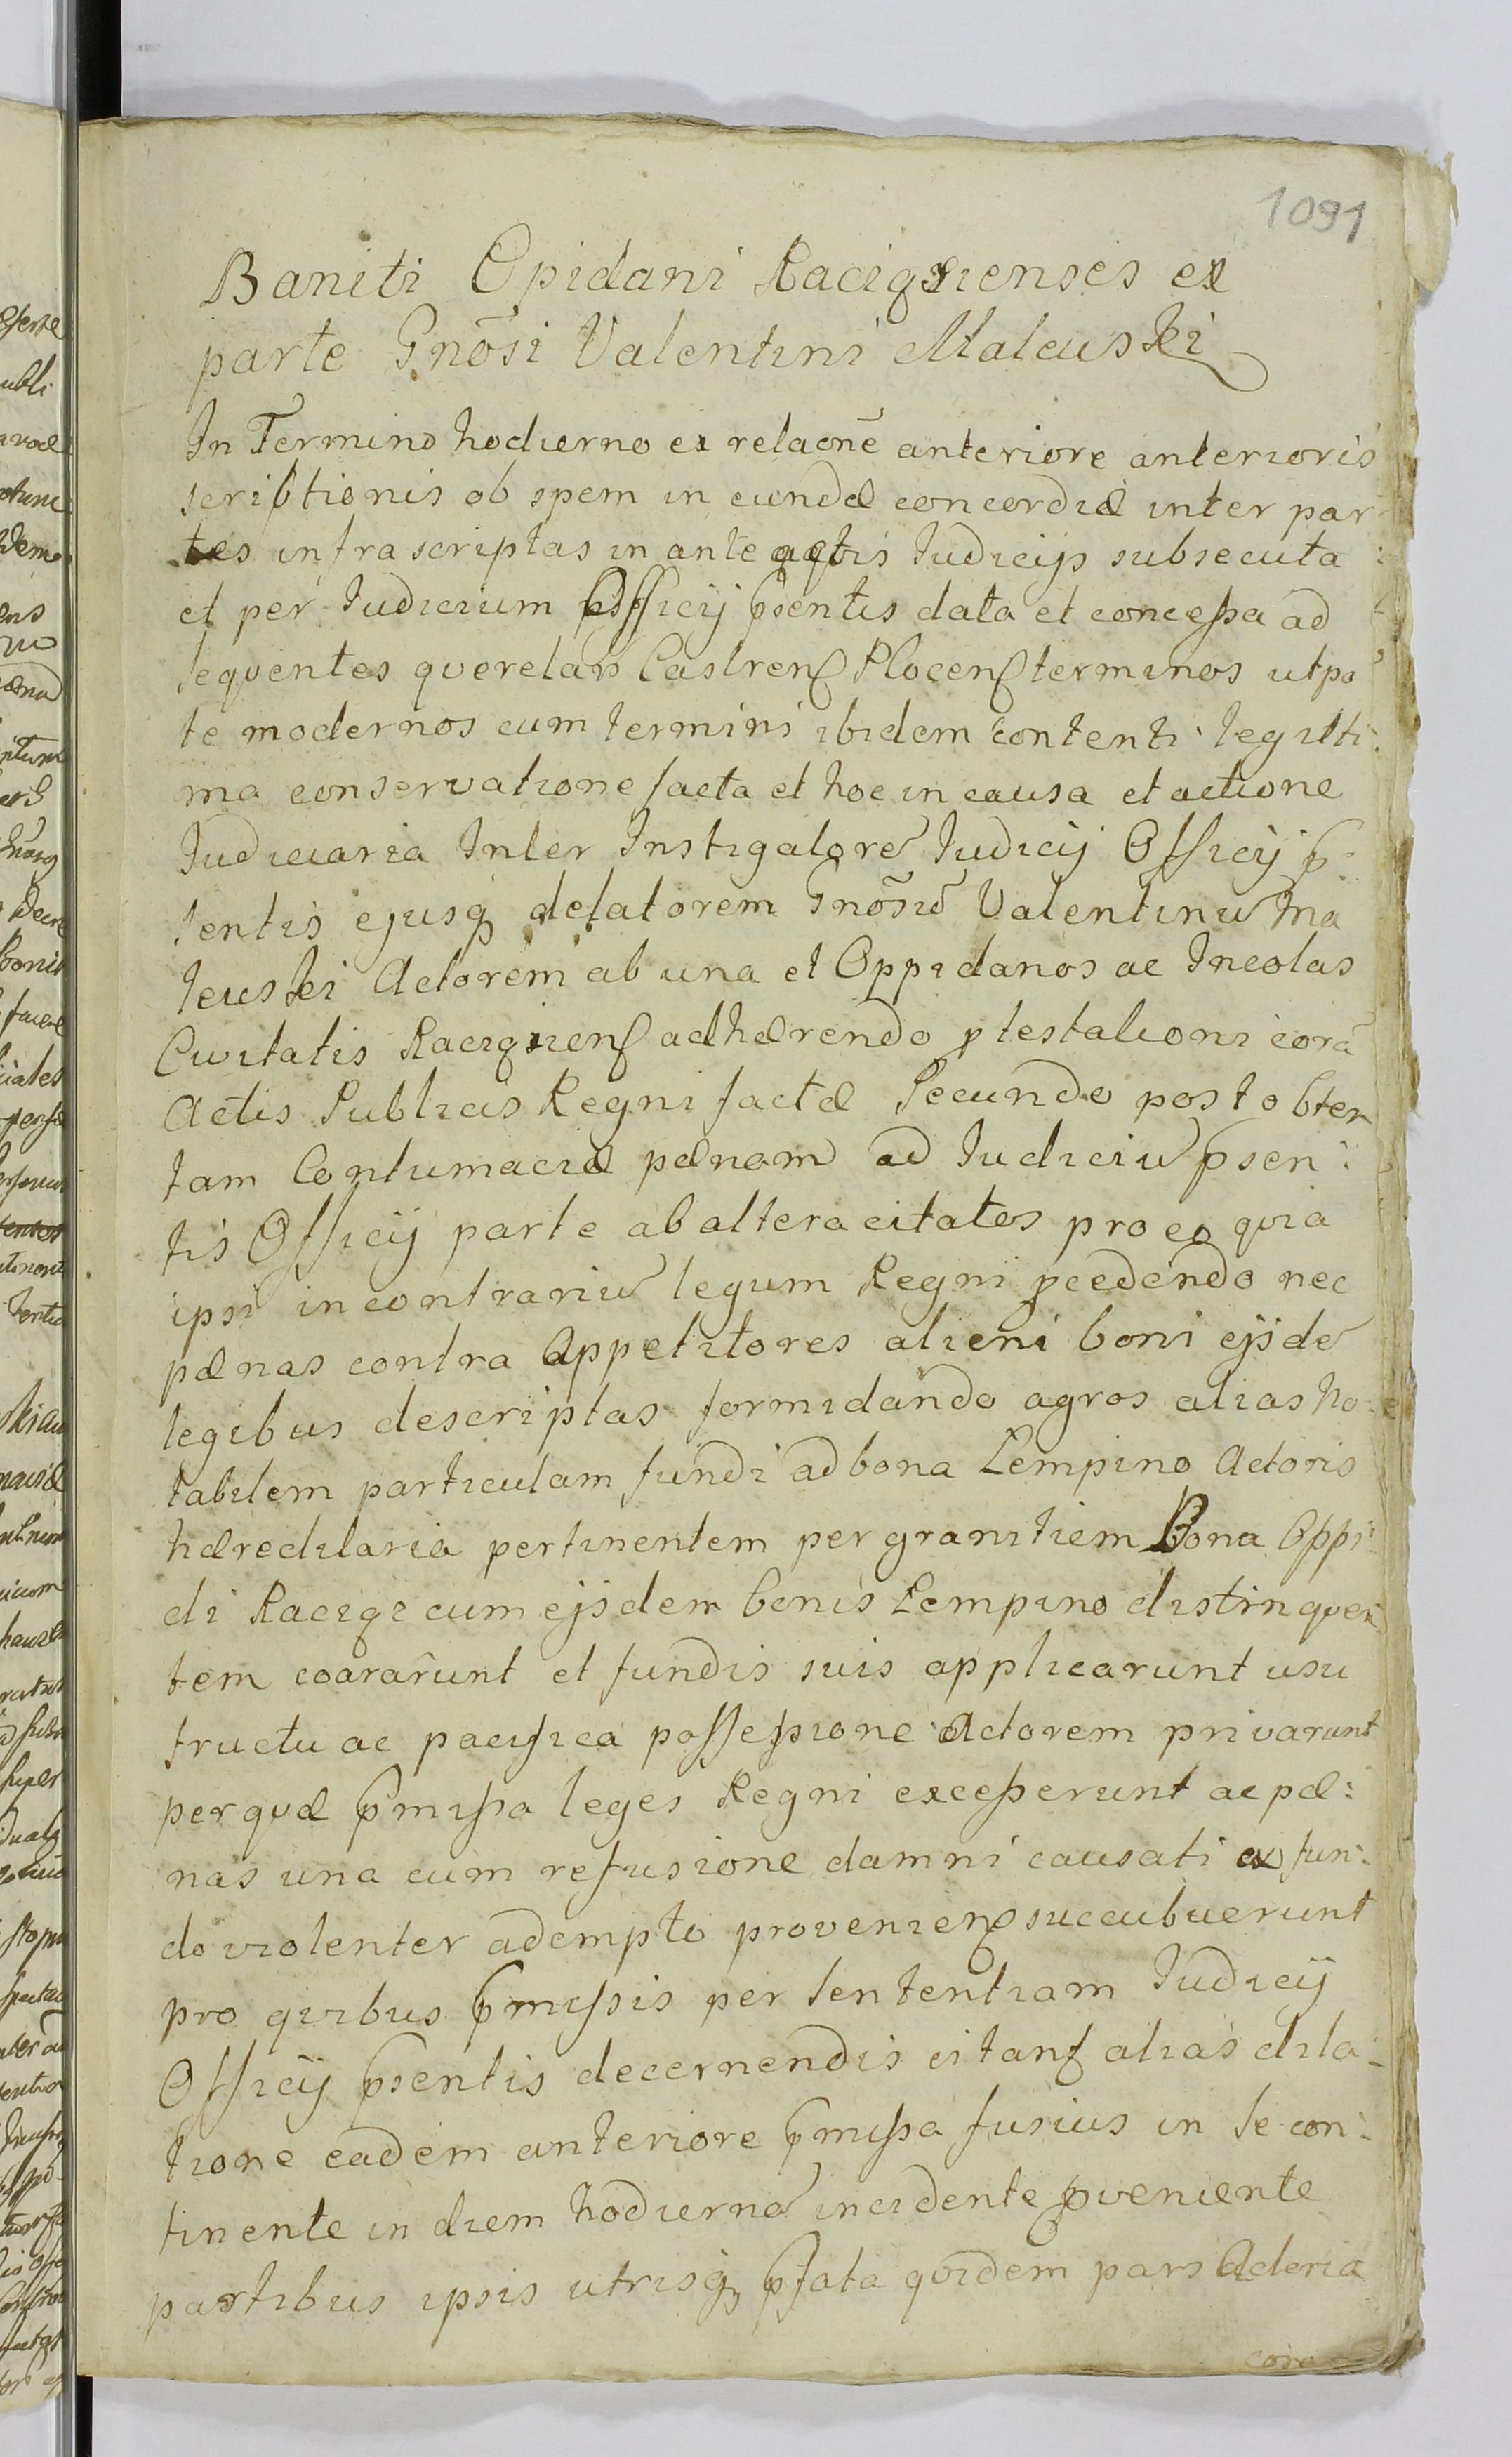 1091
Baniti Opidani Raciąsienses ex
parte Gnōsi Valentini Maleuski
In Termino hodierno ex relaōne anteriore anterioris
scribtionis ob spem in eundæ concordiæ inter par
tes infrascriptas in ante actis Iudicijs subsecuta
et per Iudicium Officij pſentis data et conceſsa ad
sequentes querelar̄ Castrenſ Plocenſ terminos utpo
te modernos cum termini ibidem contenti legitti
ma conservatione facta et hoc in causa et actione
Iudiciaria Inter Instigatorē Iudicij Officij p̄
sentis ejusq; delatorem Gnōsū Valentinū Ma
leuski Actorem ab una et Oppidanos ac Incolas
Civitatis Raciąsienſ adhærendo ptestationi corā
Actis Publicis Regni factæ Secundo post obten
tam Contumaciæ pænam ad Iudiciū pſen:
tis Officij parte ab altera citatos pro eo quia
ipsi in contrariū legum Regni pcedendo nec
pænas contra Appetitores alieni boni ejsdē
legibus descriptas formidando agros alias no
tabilem particulam fundi ad bona Lempino Actoris
hæreditaria pertinentem per granitiem Bona Oppi:
di Raciąż cum ejsdem bonis Lempino distinquen
tem coararunt et fundis suis applicarunt usu
fructu ac pacifica poſseſsione Actorem privarunt
per quæ p̄miſsa leges Regni exceſserunt ac pæ:
nas una cum refusione damni causati ex fun:
do violenter adempto provenienſ succubuerunt
pro quibus p̄miſsis per sententiam Iudicij
Officij pſentis decernendis citanſ alias dila:
tione eadem anteriore p̄miſsa fusius in se con:
tinente in diem hodiernā incidente pveniente
partibus ipsis utrisq; pfata quidem pars Actoria
cora